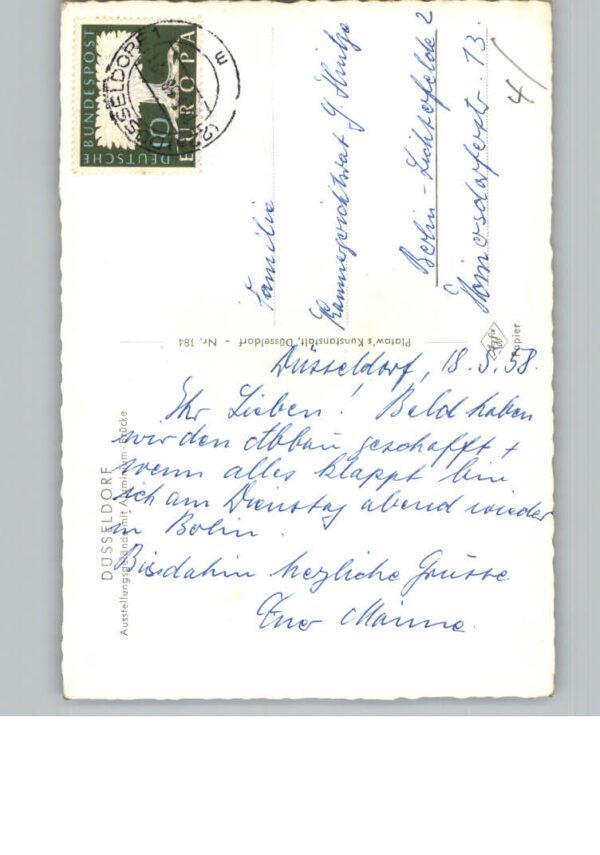 DEUTSCHE BUNDESPOST
10
EUROPA
DÜSSELDORF 1
E
Familie
Kammergerichtsrat G.
Berlin-Lichterfelde 2
13.
4/
Platow's Kunstanstalt, Düsseldorf - Nr. 184
Agfa
Papier
DÜSSELDORF
Ausstellungsgelände mit Aluminium-Brücke
Düsseldorf, 18.5.58.
Ihr Lieben! Bald haben
wir den Abbau geschafft +
wenn alles klappt bin
ich am Dienstag abend wieder
in Berlin.
Bis dahin herzliche Grüsse